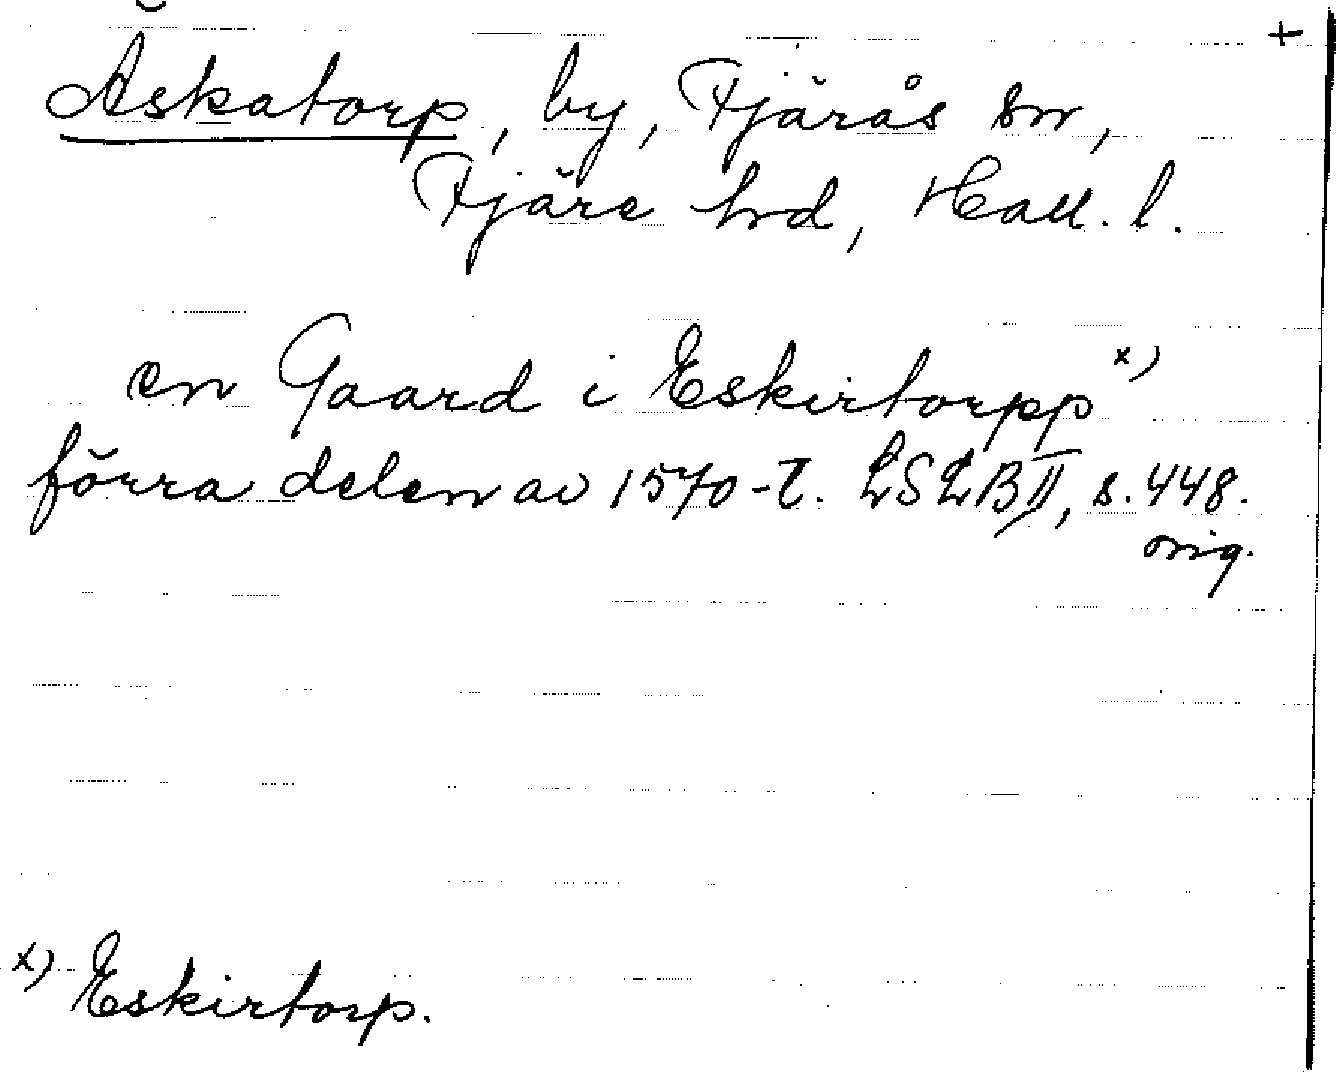 +
Äskatorp, by, Fjärås sn,
Fjäre hrd, Hall. l.
en Gaard i Eskirtorpp x)
förra delen av 1570-t. LSLB II, s. 448.
orig.
x) Eskirtorp.